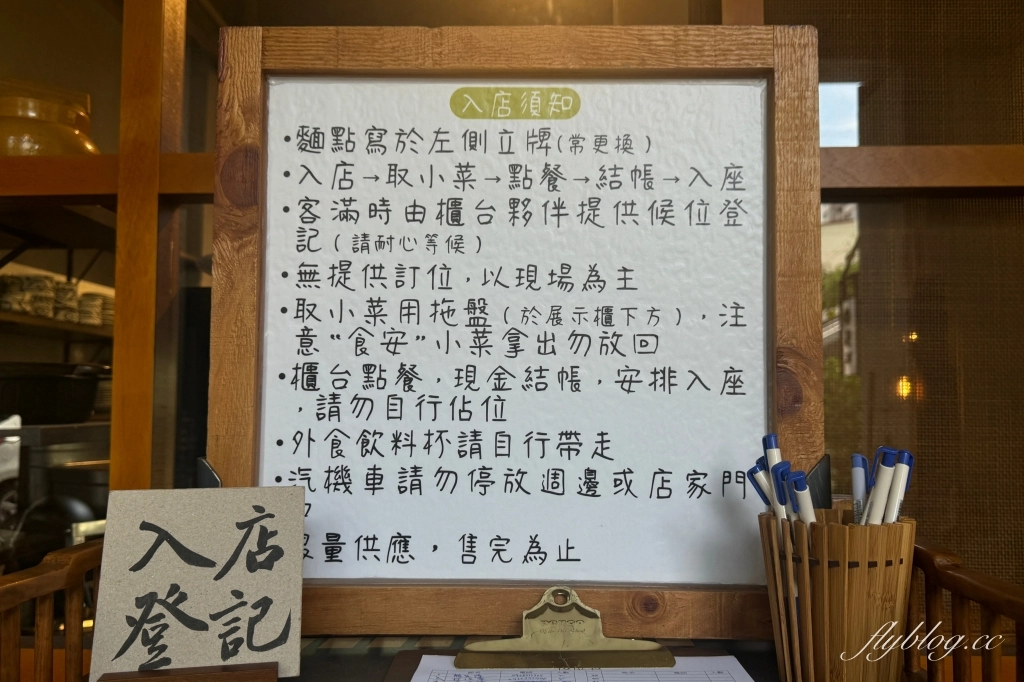 入店須知
•麵點寫於左側立牌(常更換)
•入店→取小菜→點餐→結帳→入座
•客滿時由櫃台夥伴提供候位登
記(請耐心等候)
•無提供訂位,以現場為主
•取小菜用拖盤(於展示櫃下方),注
意"食安"小菜拿出勿放回
•櫃台點餐,現金結帳,安排入座
,請勿自行佔位
•外食飲料杯請自行帶走
•汽機車請勿停放週邊或店家門
量供應,售完為止
入店
登記
flyblog.cc